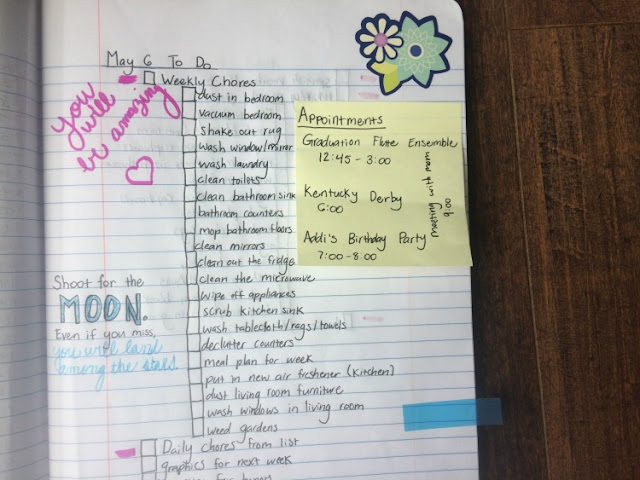 May 6 To Do
Weekly Chores
dust in bedroom
vacuum bedroom
shake out rug
wash window/mirror
wash laundry
clean toilets
clean bathroom sink
bathroom counters
mop bathroom floors
clean mirrors
clean out the fridge
clean the microwave
wipe off appliances
scrub kitchen sink
wash tablecloth/rags/towels
declutter counters
meal plan for week
put in new air freshener (kitchen)
dust living room furniture
wash windows in living room
weed gardens
Daily chores from list
graphics for next week
you
will
be amazing
Shoot for the
MOON.
Even if you miss,
you will land
among the stars.
Appointments
Graduation Flute Ensemble
12:45 - 3:00
Kentucky Derby
6:00
Addi's Birthday Party
7:00-8:00
meeting with mom
9:00